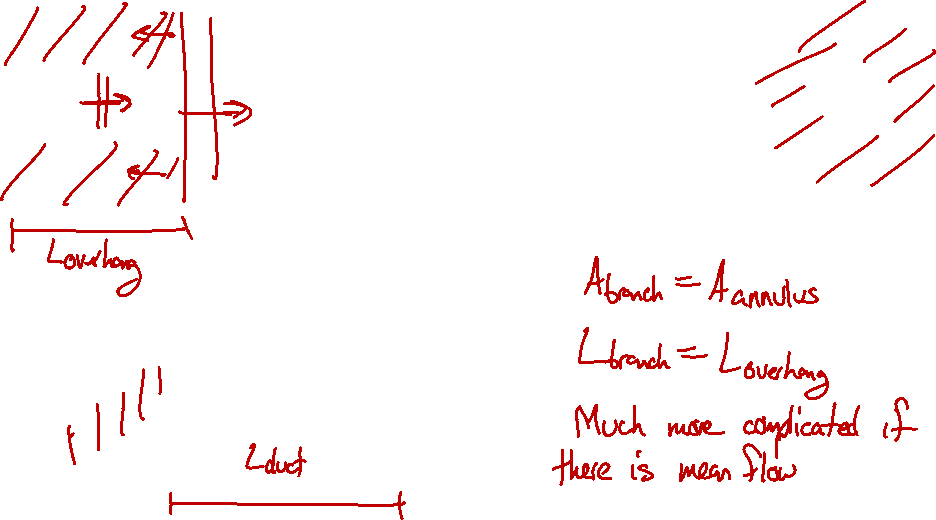 Loverhang
Abranch = Aannulus
Lbranch = Loverhang
Much more complicated if
there is mean flow
Lduct